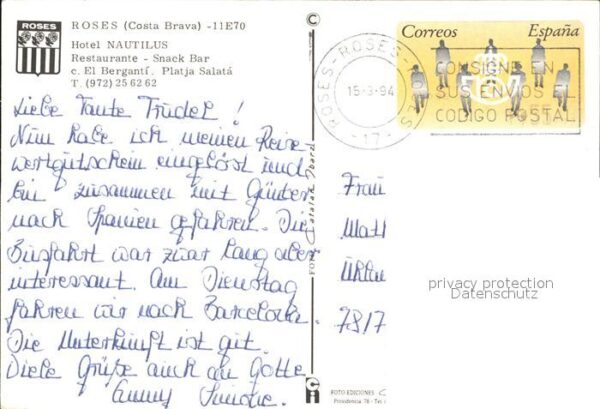 ROSES
ROSES (Costa Brava) -11E70
Hotel NAUTILUS
Restaurante - Snack Bar
c. El Bergantí. Platja Salatá
T. (972) 25 62 62
Liebe Tante Trudel!
Nun habe ich meinen Reise-
wertgutschein eingelöst und
bin zusammen mit Günter
nach Spanien gefahren. Die
Busfahrt war zwar lang aber
interessant. Am Dienstag
fahren wir nach Barcelona.
Die Unterkunft ist gut.
Viele Grüße auch an Götte
Anny
FOTO
FOTO EDICIONES
Providencia 78 - Tel.
Correos España
ROSES-ROSES
15-3-94
-17-
CONSIGNE EN
SUS ENVIOS EL
CODIGO POSTAL
Frau
7817
privacy protection
Datenschutz